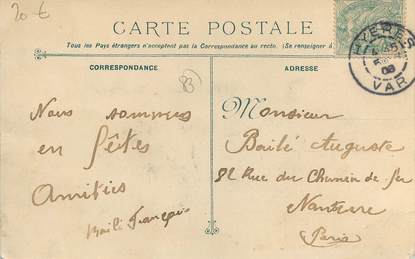 20 €
CARTE POSTALE
Tous les Pays étrangers n'acceptent pas la Correspondance au recto. (Se renseigner à
CORRESPONDANCE
ADRESSE
83
HYERES
VAR
Nous sommes
en fêtes
Amitiés
Bailé François
Monsieur
Bailé Auguste
82 Rue du Chemin de fer
Nanterre
Paris